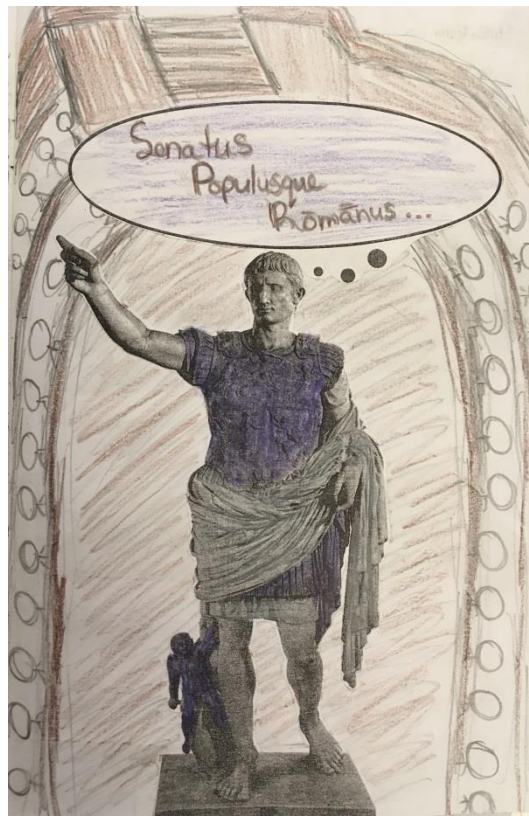 Senatus
Populusque
Rōmānus...